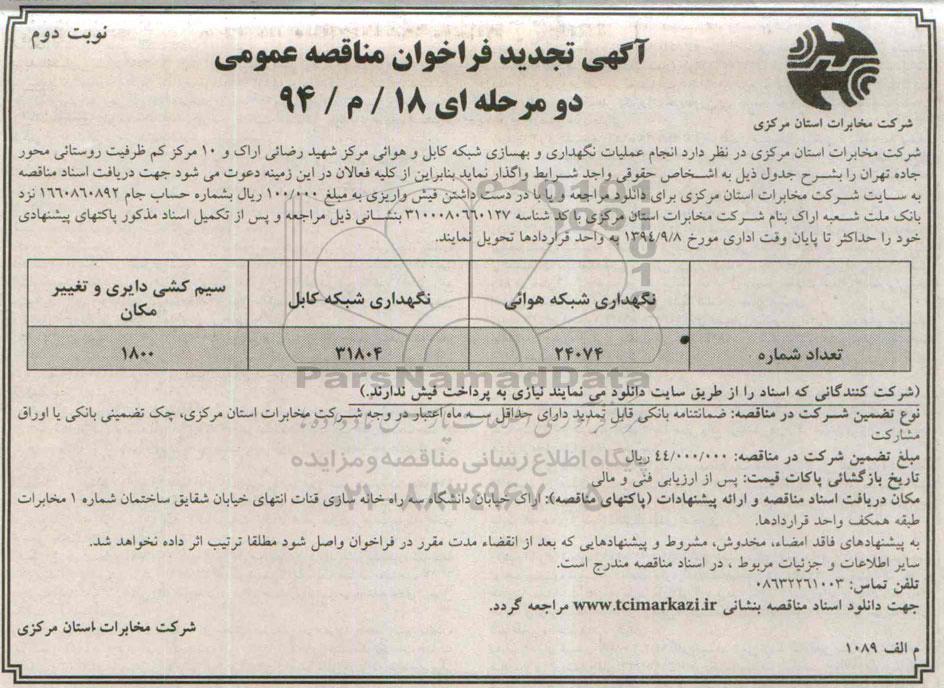 نوبت دوم
آگهی تجدید فراخوان مناقصه عمومی
دو مرحله ای ۱۸ / م / ۹۴
شرکت مخابرات استان مرکزی
شرکت مخابرات استان مرکزی در نظر دارد انجام عملیات نگهداری و بهسازی شبکه کابل و هوائی مرکز شهید رضائی اراک و ۱۰ مرکز کم ظرفیت روستائی محور
جاده تهران را بشرح جدول ذیل به اشخاص حقوقی واجد شرایط واگذار نماید بنابراین از کلیه فعالان در این زمینه دعوت می شود جهت دریافت اسناد مناقصه
به سایت شرکت مخابرات استان مرکزی برای دانلود مراجعه و یا با در دست داشتن فیش واریزی به مبلغ ۱۰۰/۰۰۰ ریال بشماره حساب جام ۱۶۶۰۸۶۰۸۹۲ نزد
بانک ملت شعبه اراک بنام شرکت مخابرات استان مرکزی با کد شناسه ۳۱۰۰۰۸۰۶۶۰۱۲۷ بنشانی ذیل مراجعه و پس از تکمیل اسناد مذکور پاکتهای پیشنهادی
خود را حداکثر تا پایان وقت اداری مورخ ۱۳۹۴/۹/۸ به واحد قراردادها تحویل نمایند.
نگهداری شبکه هوائی نگهداری شبکه کابل سیم کشی دایری و تغییر
مکان
تعداد شماره ۲۴۰۷۴ ۳۱۸۰۴ ۱۸۰۰
ParsNamadData
(شرکت کنندگانی که اسناد را از طریق سایت دانلود می نمایند نیازی به پرداخت فیش ندارند.)
نوع تضمین شرکت در مناقصه: ضمانتنامه بانکی قابل تمدید دارای حداقل سه ماه اعتبار در وجه شرکت مخابرات استان مرکزی، چک تضمینی بانکی یا اوراق
مشارکت
مبلغ تضمین شرکت در مناقصه: ۴۴/۰۰۰/۰۰۰ ریال
پایگاه اطلاع رسانی مناقصه و مزایده
تاریخ بازگشائی پاکات قیمت: پس از ارزیابی فنی و مالی
مکان دریافت اسناد مناقصه و ارائه پیشنهادات (پاکتهای مناقصه): اراک خیابان دانشگاه سه راه خانه سازی قنات انتهای خیابان شقایق ساختمان شماره ۱ مخابرات
طبقه همکف واحد قراردادها.
به پیشنهادهای فاقد امضاء، مخدوش، مشروط و پیشنهادهایی که بعد از انقضاء مدت مقرر در فراخوان واصل شود مطلقا ترتیب اثر داده نخواهد شد.
سایر اطلاعات و جزئیات مربوط ، در اسناد مناقصه مندرج است.
تلفن تماس: ۰۸۶۳۲۲۶۱۰۰۳
جهت دانلود اسناد مناقصه بنشانی www.tcimarkazi.ir مراجعه گردد.
شرکت مخابرات استان مرکزی
م الف ۱۰۸۹